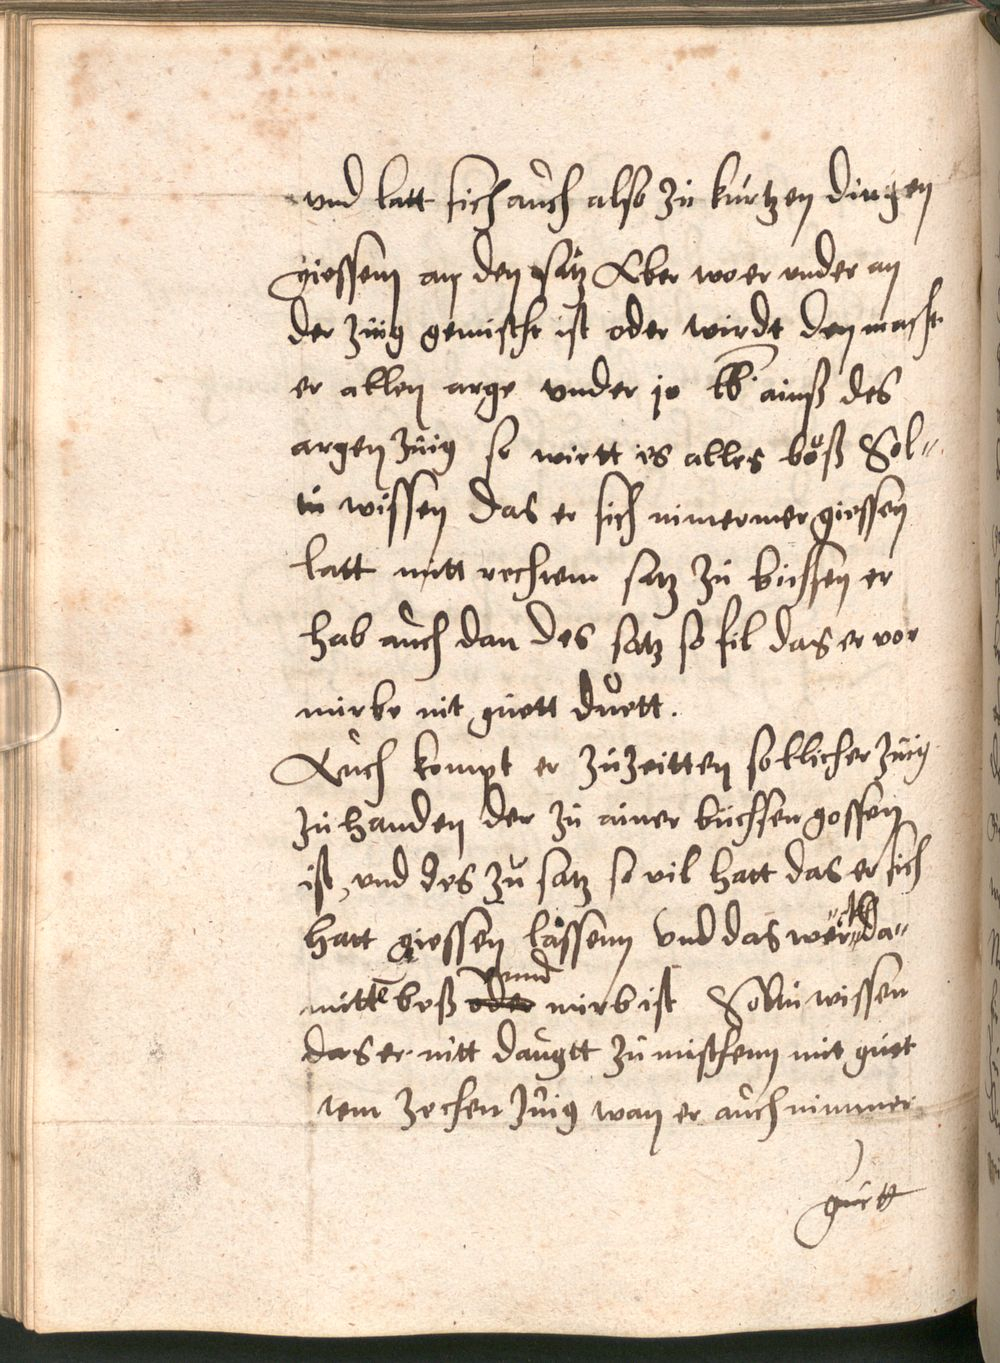 und latt sich aůch also zů kůrtzen dingen
giessenn an den satz Aber wo er under an
der zůig gemischt ist oder wirdt den macht
er allen arge under jo lb ainß des
argen zůig so wirtt es alles böß Sol„
tu wissen das er sich nimermer giessen
latt mitt rechtem satz zů bichssen er
hab aůch dan des satz so fil das er vor
mirbe nit gůett důett.
Aůch kompt er zůzeitten sollicher zůig
zů handen der zů ainer bůchssen gossen
ist, und des zů satz so vil hatt das er sich
hatt giessen lassenn und das werck da„
mitte beß unnd mirb ist Soltu wissen
das er nitt daůgtt zů mischenn mit gůet
tem zechen zůig wan er aůch nimmer
gůett